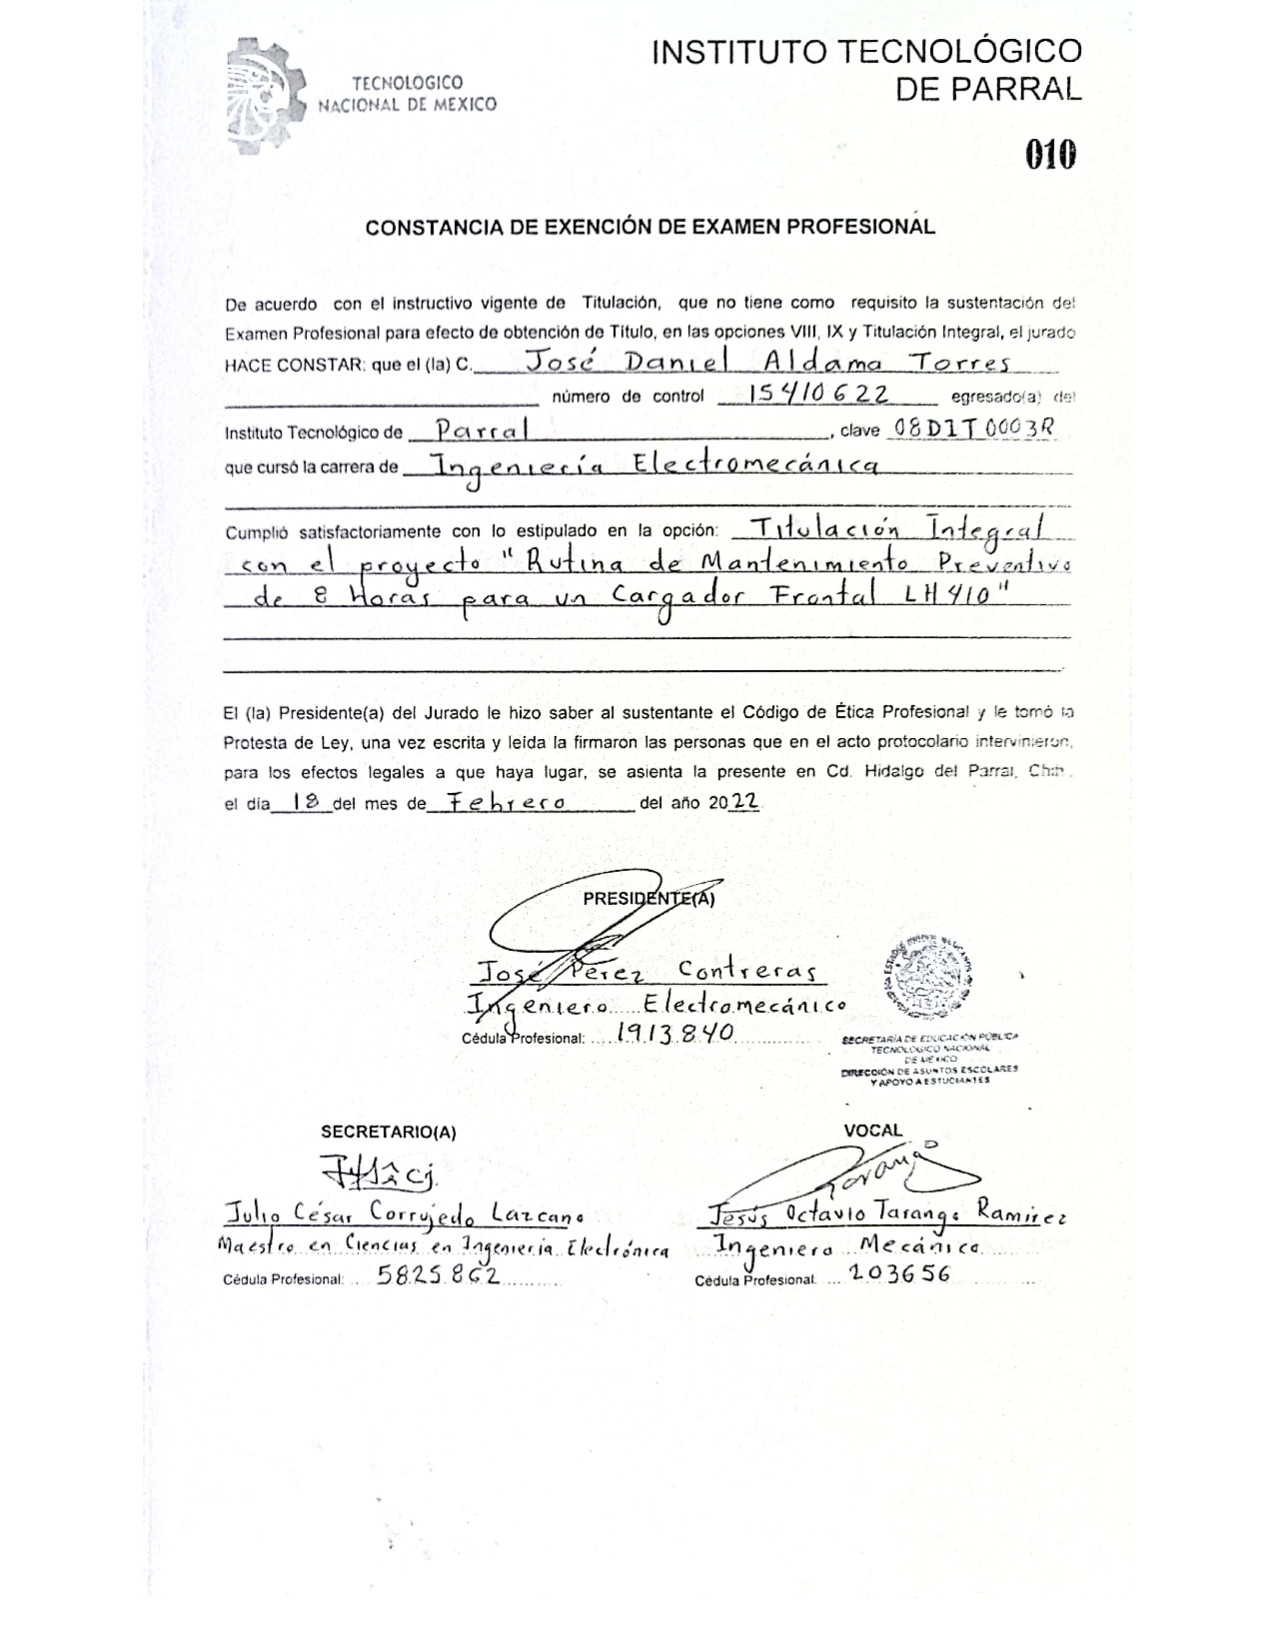 TECNOLOGICO
NACIONAL DE MEXICO
INSTITUTO TECNOLÓGICO
DE PARRAL
010
CONSTANCIA DE EXENCIÓN DE EXAMEN PROFESIONAL
De acuerdo con el instructivo vigente de Titulación, que no tiene como requisito la sustentación del
Examen Profesional para efecto de obtención de Titulo, en las opciones VIII, IX y Titulación Integral, el jurado
HACE CONSTAR: que el (la) C. José Daniel Aldama Torres
número de control 15410622 egresado(a) del
Instituto Tecnológico de Parral, clave 08DIT0003R
que cursó la carrera de Ingeniería Electromecánica
Cumplió satisfactoriamente con lo estipulado en la opción: Titulación Integral
con el proyecto "Rutina de Mantenimiento Preventivo
de 8 Horas para un Cargador Frontal LH410"
El (la) Presidente(a) del Jurado le hizo saber al sustentante el Código de Ética Profesional y le tomó la
Protesta de Ley, una vez escrita y leída la firmaron las personas que en el acto protocolario intervinieron,
para los efectos legales a que haya lugar, se asienta la presente en Cd. Hidalgo del Parral, Chih.
el día 18 del mes de Febrero del año 2022
PRESIDENTE(A)
José Pérez Contreras
Ingeniero Electromecánico
Cédula Profesional: 1913840
SECRETARÍA DE EDUCACIÓN PÚBLICA
TECNOLÓGICO NACIONAL
DE MÉXICO
DIRECCIÓN DE ASUNTOS ESCOLARES
Y APOYO A ESTUDIANTES
SECRETARIO(A)
Julio César Corrujedo Lazcano
Maestro en Ciencias en Ingeniería Electrónica
Cédula Profesional: 5825862
VOCAL
Jesús Octavio Tarango Ramírez
Ingeniero Mecánico
Cédula Profesional: 203656